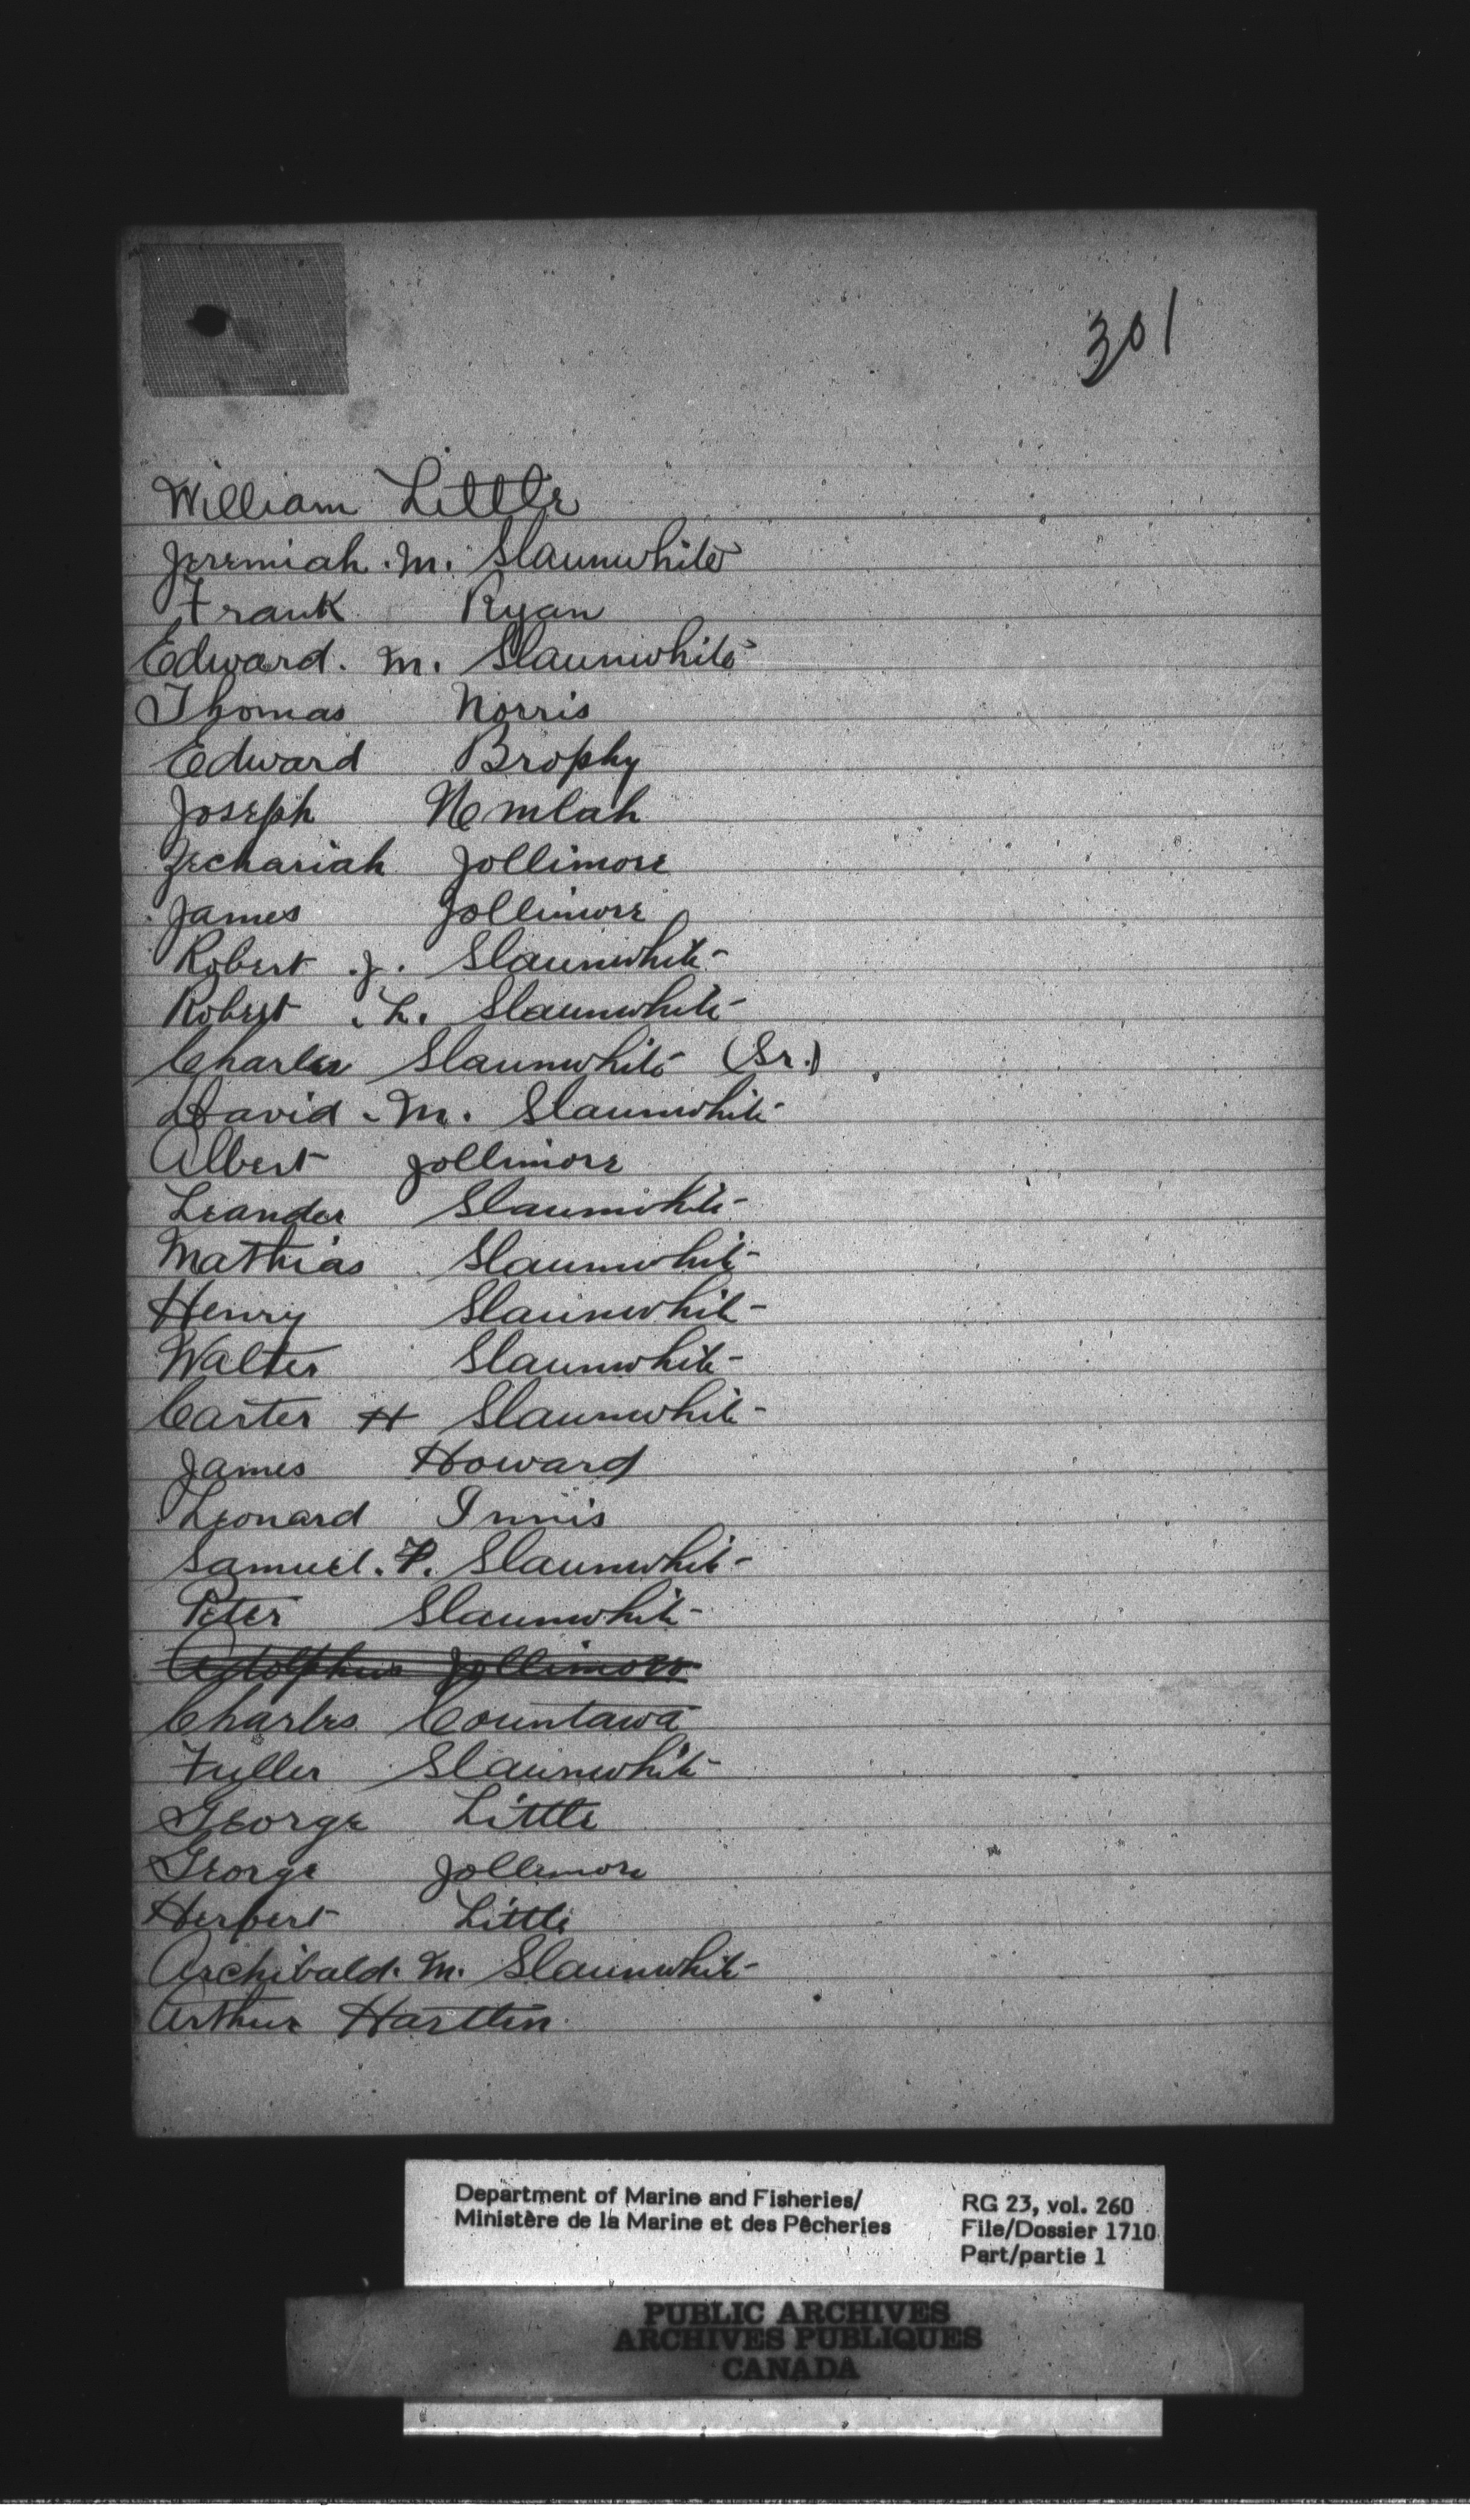 301
William Little
Jeremiah. M. Slaunwhite
Frank Ryan
Edward. M. Slaunwhite
Thomas Norris
Edward Brophy
Joseph Nemlah
Zechariah Jollimore
James Jollimore
Robert .J. Slaunwhite
Robert .L. Slaunwhite
Charles Slaunwhite (Sr.)
David. M. Slaunwhite
Albert Jollimore
Leander Slaunwhite
Mathias Slaunwhite
Henry Slaunwhite
Walter Slaunwhite
Carter H Slaunwhite
James Howard
Leonard Innis
Samuel. F. Slaunwhite
Peter Slaunwhite
Adolphus Jollimore
Charles Countawa
Fuller Slaunwhite
George Little
George Jollimore
Herbert Little
Archibald. M. Slaunwhite
Arthur Hartlin
Department of Marine and Fisheries/
Ministère de la Marine et des Pêcheries
RG 23, vol. 260
File/Dossier 1710
Part/partie 1
PUBLIC ARCHIVES
ARCHIVES PUBLIQUES
CANADA